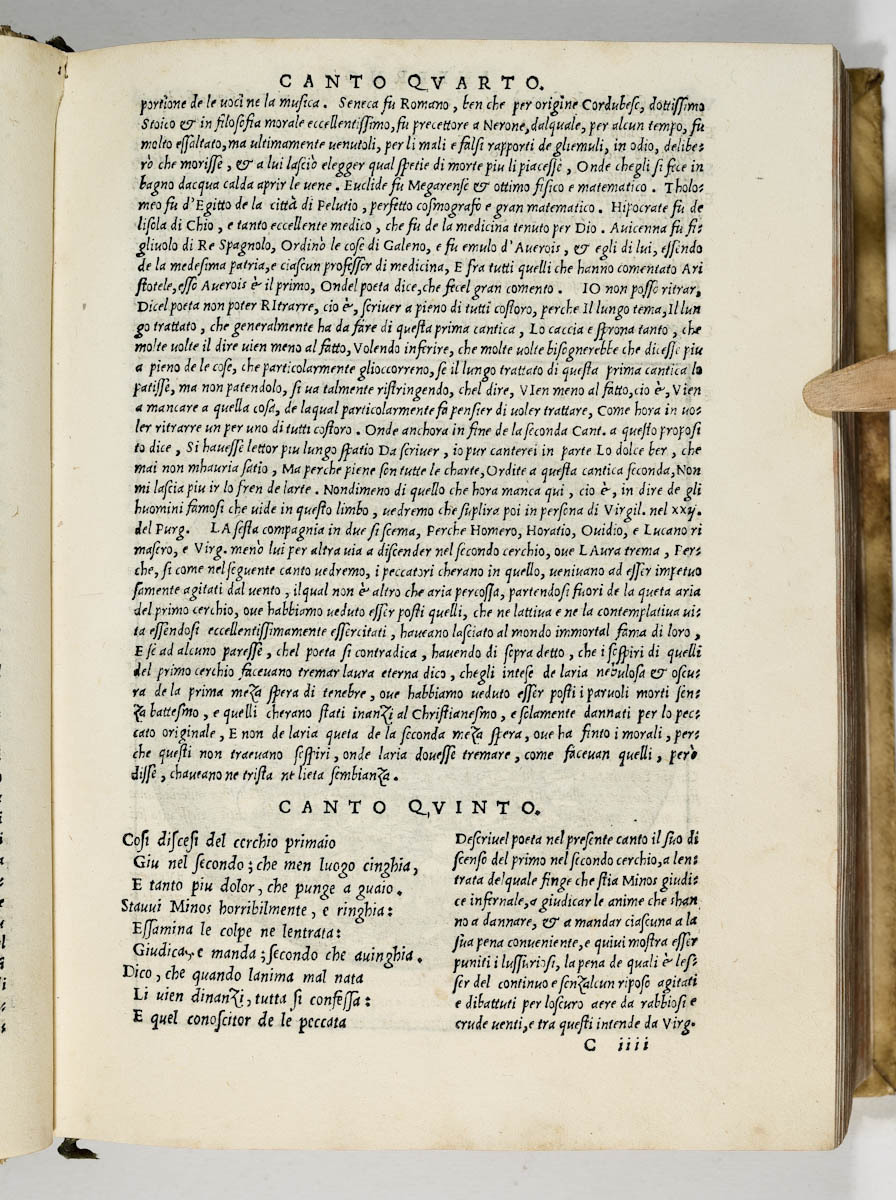 CANTO QVARTO.
portione de le uoci ne la musica. Seneca fu Romano, ben che per origine Cordubese, dottissimo
Stoico & in filosofia morale eccellentissimo, fu precettore a Nerone, dalquale, per alcun tempo, fu
molto essaltato, ma ultimamente uenutoli, per li mali e falsi rapporti de gliemuli, in odio, delibe-
rò che morisse, & a lui lasciò elegger qual spetie di morte piu li piacesse, Onde chegli si fece in
bagno dacqua calda aprir le uene. Euclide fu Megarense & ottimo fisico e matematico. Tholo-
meo fu d'Egitto de la città di Pelutio, perfetto cosmografo e gran matematico. Hipocrate fu de
lisola di Chio, e tanto eccellente medico, che fu de la medicina tenuto per Dio. Auicenna fu fi-
gliuolo di Re Spagnolo, Ordinò le cose di Galeno, e fu emulo d'Auerois, & egli di lui, essendo
de la medesima patria, e ciascun professor di medicina, E fra tutti quelli che hanno comentato Ari
stotele, esso Auerois è il primo, Ondel poeta dice, che fecel gran comento. IO non posso ritrar,
Dicel poeta non poter RItrarre, cio è, scriuer a pieno di tutti costoro, perche Il lungo tema, Il lun
go trattato, che generalmente ha da fare di questa prima cantica, Lo caccia e sprona tanto, che
molte uolte il dire uien meno al fatto, Volendo inferire, che molte uolte bisognerebbe che dicesse piu
a pieno de le cose, che particolarmente glioccorreno, se il lungo trattato di questa prima cantica lo
patisse, ma non patendolo, si ua talmente ristringendo, chel dire, VIen meno al fatto, cio è, Vien
a mancare a quella cosa, de laqual particolarmente fa pensier di uoler trattare, Come hora in uo-
ler ritrarre un per uno di tutti costoro. Onde anchora in fine de la seconda Cant. a questo proposi
to dice, Si hauesse lettor piu lungo spatio Da scriuer, io pur canterei in parte Lo dolce ber, che
mai non mhauria satio, Ma perche piene son tutte le charte, Ordite a questa cantica seconda, Non
mi lascia piu ir lo fren de larte. Nondimeno di quello che hora manca qui, cio è, in dire de gli
huomini famosi che uide in questo limbo, uedremo che suplira poi in persona di Virgil. nel xxij.
del Purg. LA sesta compagnia in due si scema, Perche Homero, Horatio, Ouidio, e Lucano ri
masero, e Virg. menò lui per altra uia a discender nel secondo cerchio, oue LAura trema, Per-
che, si come nel seguente canto uedremo, i peccatori cherano in quello, ueniuano ad esser impetuo
samente agitati dal uento, ilqual non è altro che aria percossa, partendosi fuori de la queta aria
del primo cerchio, oue habbiamo ueduto esser posti quelli, che ne lattiua e ne la contemplatiua ui-
ta essendosi eccellentissimamente essercitati, haueano lasciato al mondo immortal fama di loro,
E se ad alcuno paresse, chel poeta si contradica, hauendo di sopra detto, che i sospiri di quelli
del primo cerchio faceuano tremar laura eterna dico, chegli intese de laria nebulosa & oscu-
ra de la prima meza spera di tenebre, oue habbiamo ueduto esser posti i paruoli morti sen-
za battesmo, e quelli cherano stati inanzi al Christianesmo, e solamente dannati per lo pec-
cato originale, E non de laria queta de la seconda meza spera, oue ha finto i morali, per-
che questi non traeuano sospiri, onde laria douesse tremare, come faceuan quelli, però
disse, chaueano ne trista ne lieta sembianza.
CANTO QVINTO.
Cosi discesi del cerchio primaio
Giu nel secondo; che men luogo cinghia,
E tanto piu dolor, che punge a guaio.
Stauui Minos horribilmente, e ringhia:
Essamina le colpe ne lentrata:
Giudica, e manda; secondo che auinghia.
Dico, che quando lanima mal nata
Li uien dinanzi, tutta si confessa:
E quel conoscitor de le peccata
Descriuel poeta nel presente canto il suo di
scenso del primo nel secondo cerchio, a len-
trata delquale finge che stia Minos giudi-
ce infernale, a giudicar le anime che shan
no a dannare, & a mandar ciascuna a la
sua pena conueniente, e quiui mostra esser
puniti i lussuriosi, la pena de quali è les-
ser del continuo e senzalcun riposo agitati
e dibattuti per loscuro aere da rabbiosi e
crude uenti, e tra questi intende da Virg.
C iiii